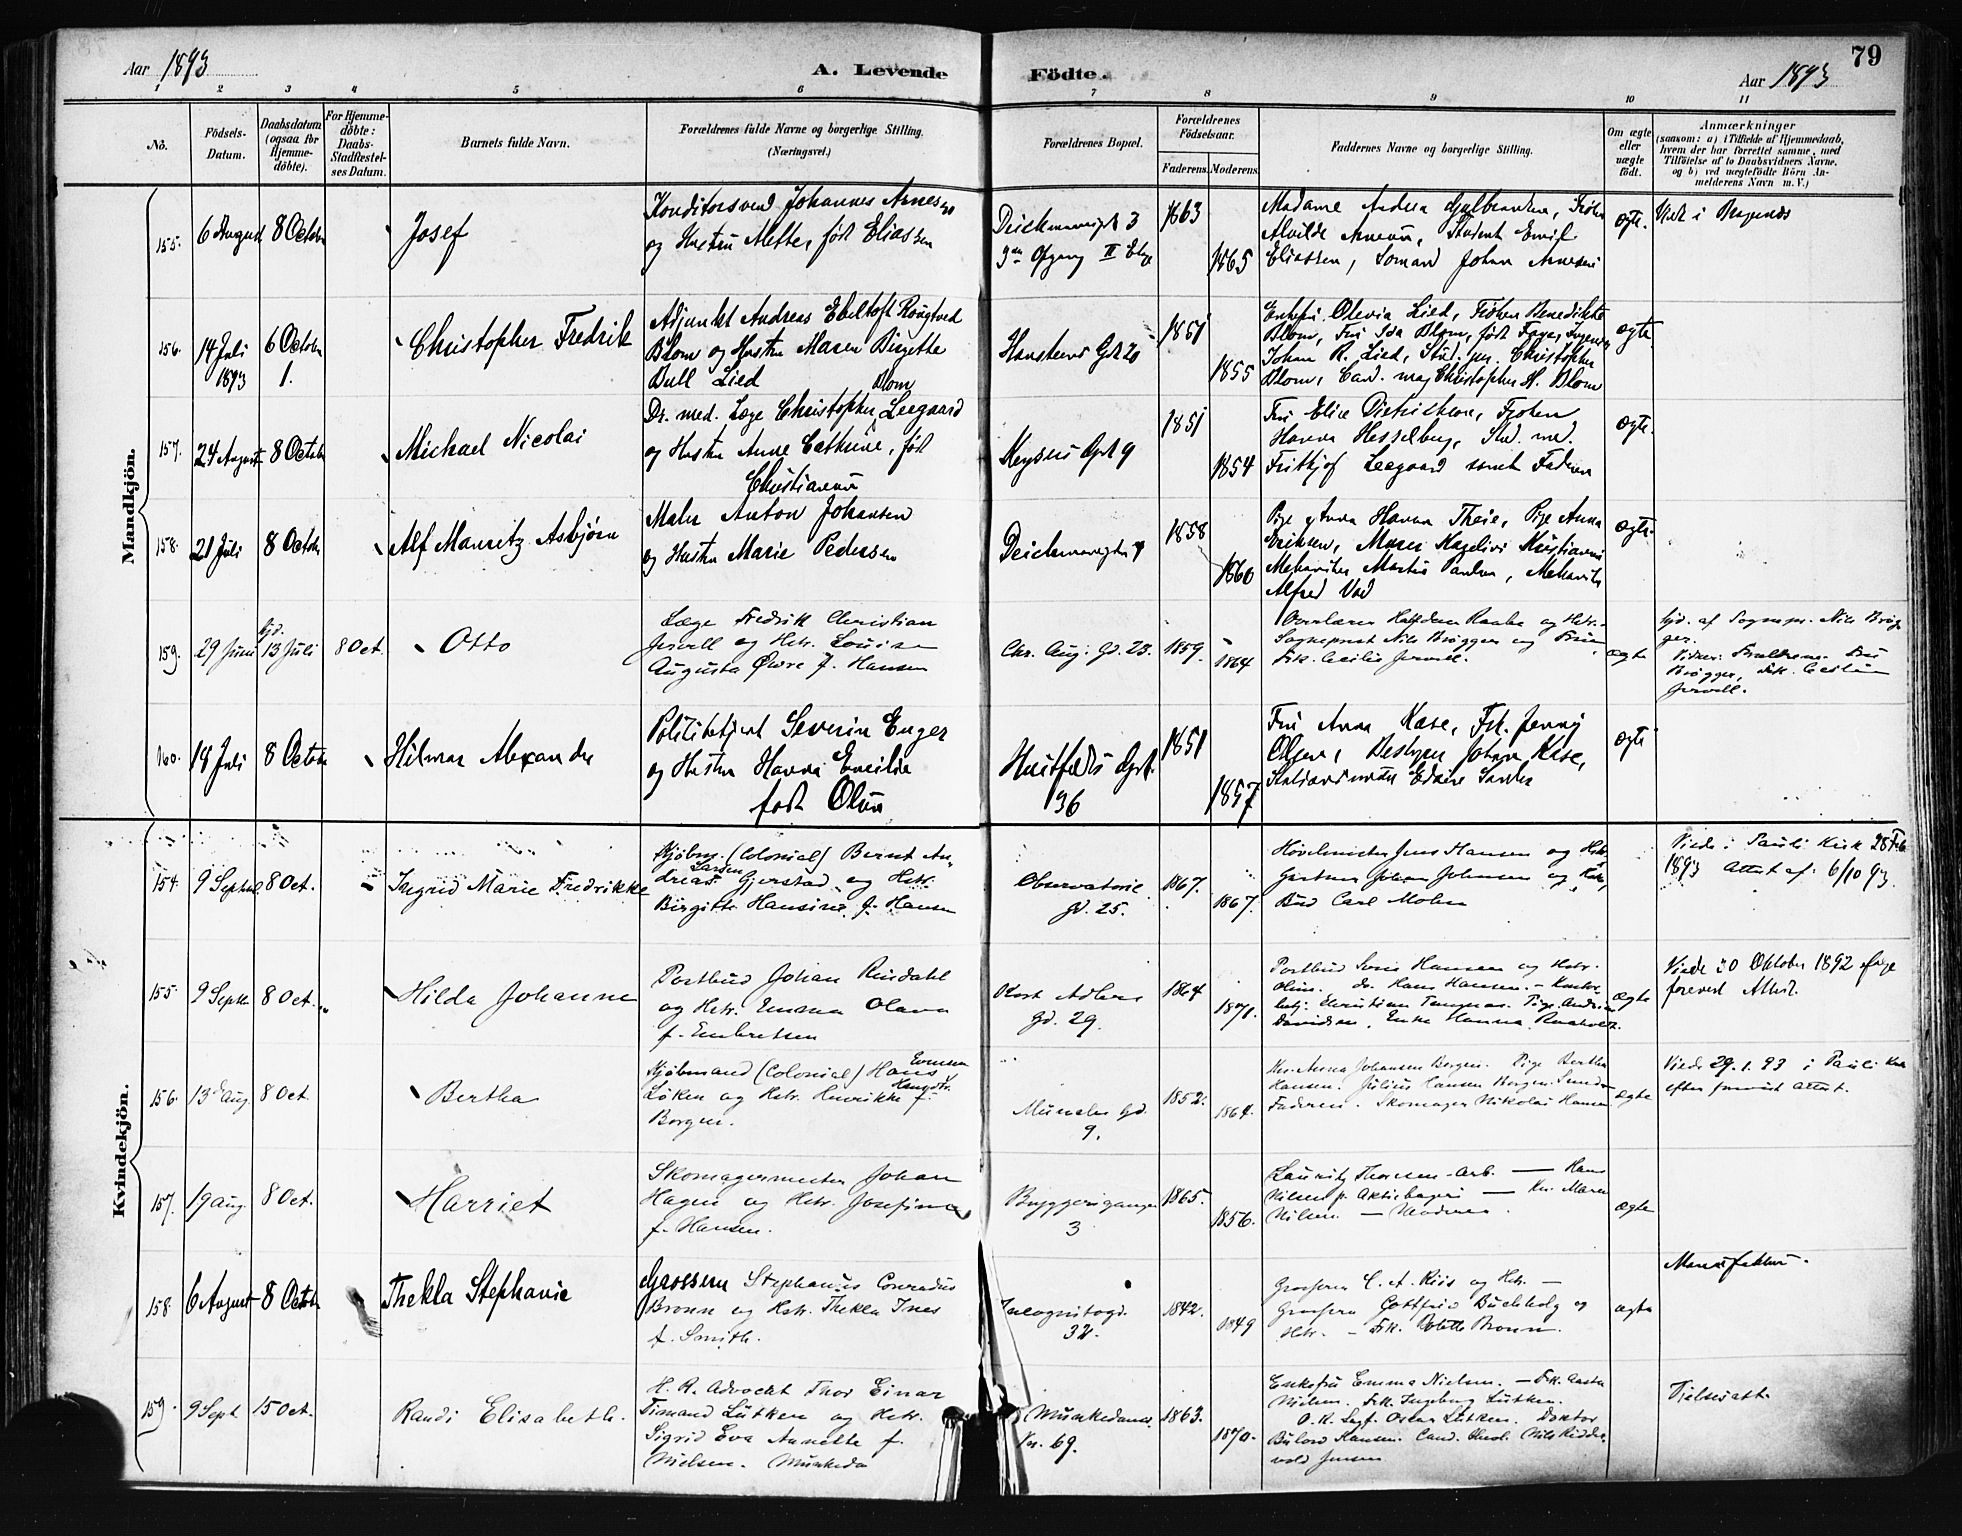 79
Aar 1893
A. Levende
Födte.
Aar 1893
1 2 3 4 5 6 7 8 9 10 11
No.
Födsels-
Datum.
Daabsdatum
(ogsaa for
Hjemme-
döbte).
For Hjemme-
döbte:
Daabs-
Stadfæstel-
ses Datum.
Barnets fulde Navn.
Forældrenes fulde Navne og borgerlige Stilling.
(Næringsvei.)
Forældrenes Bopæl.
Forældrenes
Födselsaar.
Faderens. Moderens.
Faddernes Navne og borgerlige Stilling.
Om ægte
eller
uægte
födt.
Anmærkninger
(saasom: a) i Tilfælde af Hjemmedaab,
hvem der har forrettet samme, med
Tilföielse af to Daabsvidners Navne,
og b) ved uægtefödte Börn An-
melderens Navn m. V.)
Mandkjön.
155. 6 August 8 Octobr Josef
Konditorsvend Johannes Arnesen
og Hustru Mette, født Eliassen
3 Opgang II Etage
1863
1865
Madame Andrea Gulbrandsen, Frøken
Alvilde Arnesen, Student Emil
Eliassen, Sømand Johan Arnesen
ægte.
156. 14 Juli
1893
6 Octobr
1.
Christopher Fredrik
Adjunkt Andreas Ebeltoft Rougtved
Blom og Hustru Maren Birgitte
Bull Lied
Hanstens Gd 20
1851
1855
Enkefru Olevia Lied, Frøken Benedikte
Blom, Fru Ida Blom, født
Johan R. Lied, Stud. jur. Christopher
Blom, Cand. mag Christopher H. Blom
ægte
157. 24 August 8 Octobr Michael Nicolai
Blom
Dr. med. Læge Christopher Leegaard
og Hustru Anne Cathrine, født
Christiansen
Keysers Gd 9
1851
1854
Fru Elise Dietrichson, Frøken
Hanna Hesselberg, Stud. med.
Frithjof Leegaard samt Faderen
ægte.
158. 21 Juli 8 Octobr Alf Mauritz Asbjørn
Maler Anton Johansen
og Hustru Marie Pedersen
1858
1860
Pige Anna Hanna Theie, Pige Anna
Eriksen,
Alfred
ægte.
159. 29 Juni hjd. 13 Juli 8 Oct. Otto
Læge Fredrik Christian
Jervell og Hstr. Louise
Augusta Øwre f. Hansen
Chr. Aug. Gd. 23.
1859.
1864
Overlærer Halfdan Raabe og Hstr.
Sogneprest Nils Brøgger og Frue,
Frk. Cecilie Jervell.
ægte
hjd. af Sognepr. Nils Brøg-
ger.
Vidner: Forældrene. Fru
Brøgger, Frk. Cecilie
Jervell.
160. 18 Juli 8 Octobr Hilmar Alexander
Politibetjent Severin Enger
og Hustru Hanna
født Olsen
Huitfelds Gd.
36
1851
1857
Fru Anna Kase, Frk. Jenny
Olsen, Johan Kase,
ægte
Kvindekjön.
154. 9 Septbr 8 Oct. Ingrid Marie Fredrikke
Kjøbm. (Colonial) Bernt An-
dreas Larsen Gjerstad og Hstr.
Birgitte Hansine f. Hansen
Observatorie
gd. 25.
1867.
1867.
Høvelmester Jens Hansen og Hstr.
Gartner Johan Johnsen og Hstr.
Bud Carl Mohn
Viede i Pauli Kirk 28 Feb
1893 Attest af 6/10 93.
155 9 Septbr 8 Oct. Hilda Johanne
Postbud Johan Rindahl
og Hstr. Emma Olava
f. Embretsen
Kort Adlers
Gd. 29.
1864
1871.
Postbud Hansen og Hstr.
do. Hans Hansen.
Christian Pige Andrine
Davidsen, Enke Hanna
ægte
Viede 30 Oktober 1892 ifølge
forevist Attest.
156. 13 Aug. 8 Oct. Bertha
Kjøbmand (Colonial) Hans Evensen
Løken og Hstr. Henrikke f.
Borgen.
Munchs Gd.
9.
1852.
1864.
Anna Johansen Borgen. Pige Bertha
Hansen. Julius Hansen Borgen.
Faderen. Skomager Nikolai Hansen
ægte
Viede 29.1.93 i Pauli Kirk
efter forevist attest.
157. 19 Aug. 8 Oct. Harriet
Skomagermester Johan
Hagen og Hstr. Josefine
f. Hansen.
Bryggerigangen
3
1865.
1856.
Lauritz Thoresen - Arb. — Hans
Nilsen p. Aktiebageri — Maren
Nilsen — Moderen.
ægte
158. 6 August 8 Octobr Thekla Stephanie
Grosserer Stephanus Conradus
Bronn og Hstr. Thekla Ines
f. Smith.
Incognitogd.
32.
1842.
1849
Grosserer C. A. Riis og Hstr. —
Grosserer Gottfrid Buchholz og
Hstr. — Frk. Bronn.
ægte
Manufaktur.
159. 9 Sept 15 Oct. Randi Elisabeth.
H. R. Advocat Thor Einar
Timand Lütken og Hstr.
Sigrid Eva Annette f.
Nielsen. Munkeda
Munkedams
Vn. 69.
1863.
1870.
Enkefru Emma Nielsen. — Frk. Aasta
Nielsen. Frk. Ingeborg Lütken.
O. R. Sagf. Oscar Lütken. Doktor
Bülow Hansen. Cand. theol. Nils Ridder-
vold Jensen
Vielsesatt.